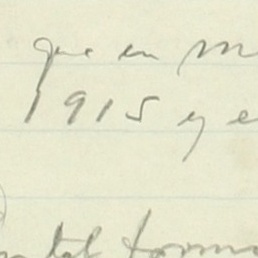 que en m
1915 y e
ntal forma